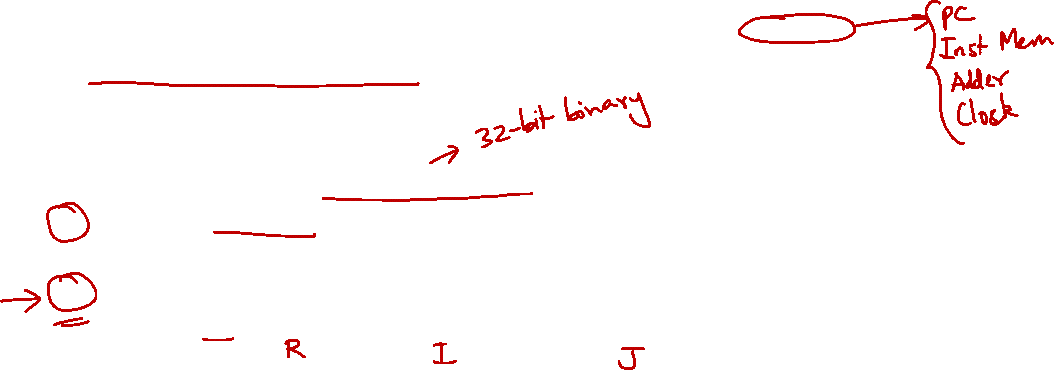 PC
Inst Mem
Adder
Clock
32-bit binary
R I J